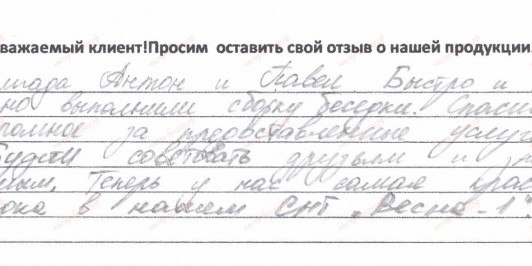 важаемый клиент!Просим оставить свой отзыв о нашей продукции
игада Антон и Павел Быстро и
но выполнили сборку беседки. Спаси
ромное за предоставленные услуги
Будем советовать друзьям и з
мым. Теперь у нас самая крас
в нашем СНТ „Весна-1"